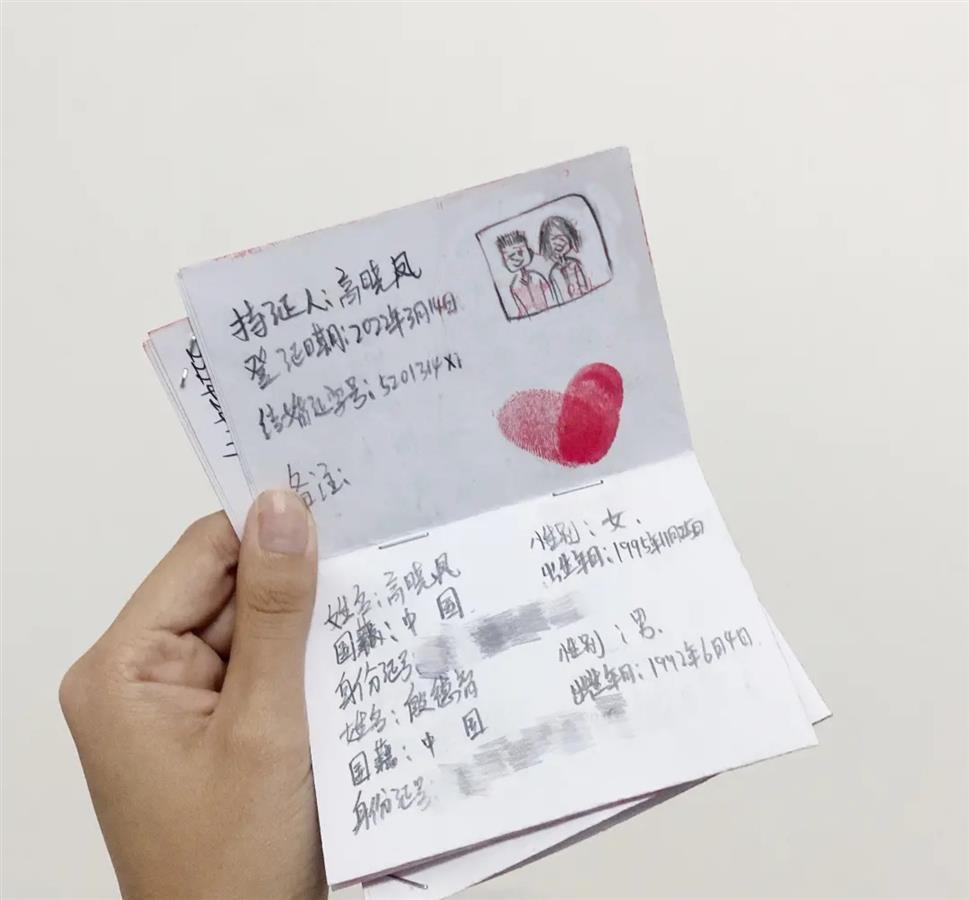 持证人:高晓凤
登证日期:2022年3月14日
结婚证字号:5201314X1
备注:
姓名:高晓凤 性别:女.
国籍:中国 出生年月:1995年11月25日
身份证号
姓名:殷德智 性别:男.
国籍:中国 出生年月:1992年6月4日
身份证号: